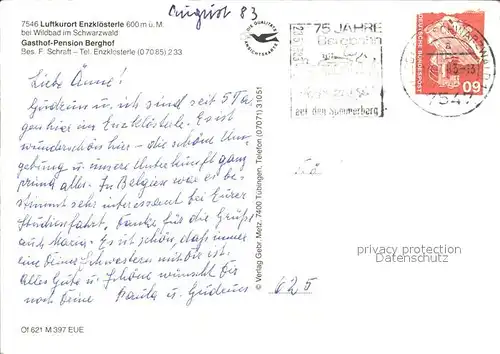 August 83
7546 Luftkurort Enzklösterle 600 m ü. M.
bei Wildbad im Schwarzwald
Gasthof-Pension Berghof
Bes. F. Schraft – Tel. Enzklösterle (07085) 233
DIE QUALITÄTS
ANSICHTSKARTE
75 JAHRE
Bergbahn
auf den Sommerberg
7547
DEUTSCHE BUNDESPOST
60
Liebe Änne!
Gudrun u. ich sind seit 5 Ta-
gen hier in Enzklösterle. Es ist
wunderschön hier – die schöne Um-
gebung u. unsere Unterkunft ganz
prima alles. In Belgien war es be-
stimmt sehr interessant bei Eurer
Studienfahrt. Danke für die Grüße
aus Es ist schön, daß immer
eine Deiner Schwestern mit dir ist.
Alles Gute u. Schöne wünscht Dir
noch Deine Paula u. Gudrun
© Verlag Gebr. Metz, 7400 Tübingen, Telefon (07071) 31051
625
privacy protection
Datenschutz
Of 621 M 397 EUE